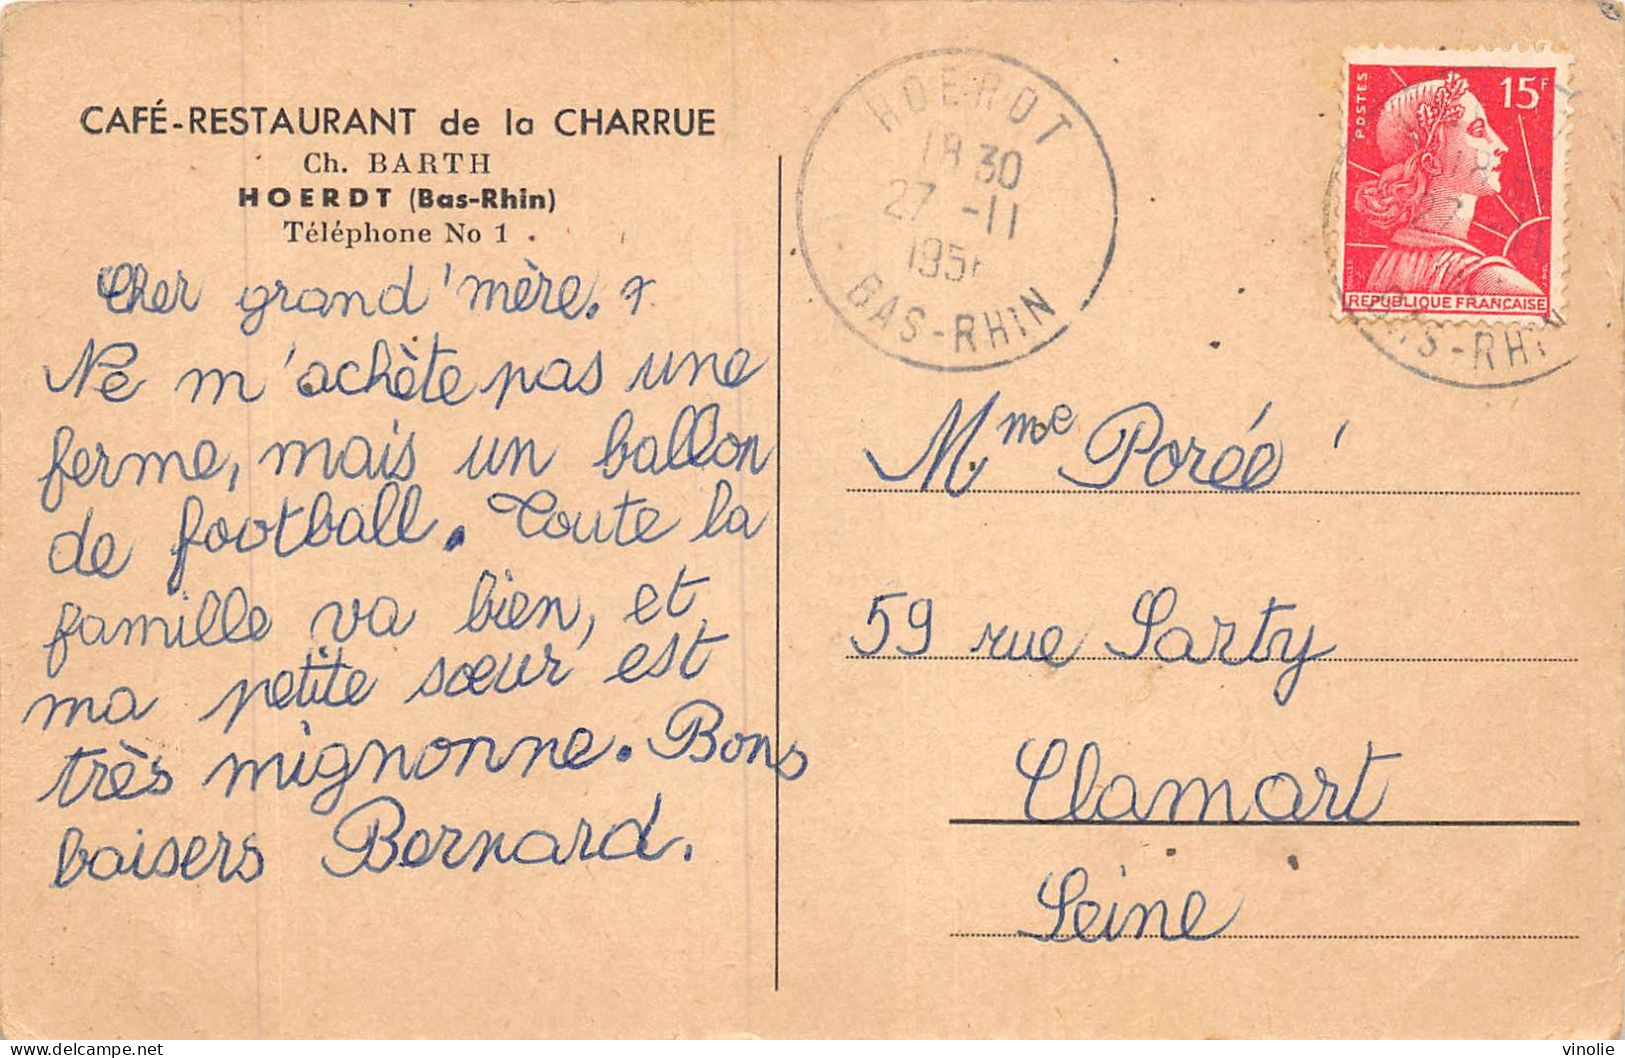 CAFÉ-RESTAURANT de la CHARRUE
Ch. BARTH
HOERDT (Bas-Rhin)
Téléphone No 1
Cher grand'mère.
Ne m'achète pas une
ferme, mais un ballon
de football. Toute la
famille va bien, et
ma petite sœur est
très mignonne. Bons
baisers Bernard.
HOERDT
18 30
27 -11
BAS-RHIN
POSTES
15F
REPUBLIQUE FRANÇAISE
Mme Porée
59 rue Sarty
Clamart
Seine
vinolie